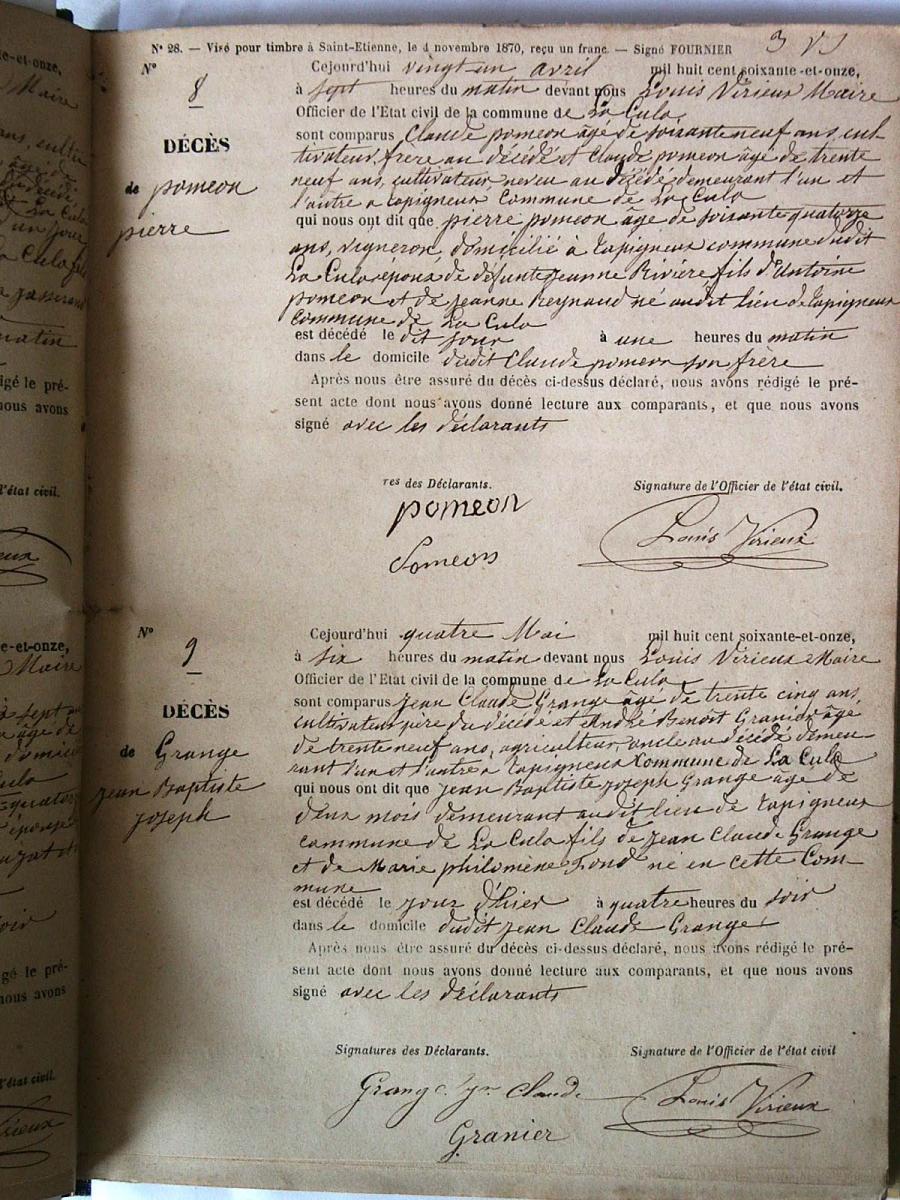 N° 28. — Visé pour timbre à Saint-Etienne, le 4 novembre 1870, reçu un franc. — Signé FOURNIER
N°
8
DÉCÈS
de pomeon
pierre
Cejourd'hui vingt un avril mil huit cent soixante-et-onze,
à sept heures du matin devant nous Louis Virieux Maire
Officier de l'Etat civil de la commune de La Cula
sont comparus Claude pomeon âgé de soixante neuf ans, cul
tivateur, frère au décédé et Claude pomeon âgé de trente
neuf ans, cultivateur neveu au décédé demeurant l'un et
l'autre a Tapigneux Commune de La Cula
qui nous ont dit que pierre pomeon âge de soixante quatorze
ans, vigneron, domicilié à Tapigneux commune dudit
La Cula époux de défunte Jeanne Rivière fils d'Antoine
pomeon et de Jeanne Reynaud né audit lieu de Tapigneux
Commune de La Cula
est décédé le dit jour à une heures du matin
dans le domicile dudit Claude pomeon son frère
Après nous être assuré du décès ci-dessus déclaré, nous avons rédigé le pré-
sent acte dont nous avons donné lecture aux comparants, et que nous avons
signé avec les déclarants
res des Déclarants. Signature de l'Officier de l'état civil.
pomeon
Pomeon
Louis Virieux
N°
9
DÉCÈS
de Grange
Jean Baptiste
Joseph
Cejourd'hui quatre Mai mil huit cent soixante-et-onze,
à six heures du matin devant nous Louis Virieux Maire
Officier de l'Etat civil de la commune de La Cula
sont comparus Jean Claude Grange âgé de trente cinq ans
cultivateur père du décédé et André Benoit Granier âgé
de trente neuf ans, agriculteur, oncle au décédé demeu
rant l'un et l'autre à Tapigneux Commune de La Cula
qui nous ont dit que Jean Baptiste Joseph Grange âge de
deux mois demeurant audit lieu de Tapigneux
commune de La Cula fils de Jean Claude Grange
et de Marie philomène Fond né en cette Com
mune
est décédé le jour d'hier à quatre heures du soir
dans le domicile dudit Jean Claude Grange
Après nous être assuré du décès ci-dessus déclaré, nous avons rédigé le pré-
sent acte dont nous avons donné lecture aux comparants, et que nous avons
signé avec les déclarants
Signatures des Déclarants. Signature de l'Officier de l'état civil
Grange Claude
Granier
Louis Virieux